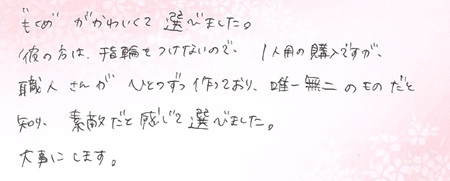 "もくめ" がかわいくて 選びました。
彼の方は、指輪をつけないので、 1人用の購入ですが、
職人さんが ひとつずつ作っており、唯一無二のものだと
知り、素敵だと感じて選びました。
大事にします。